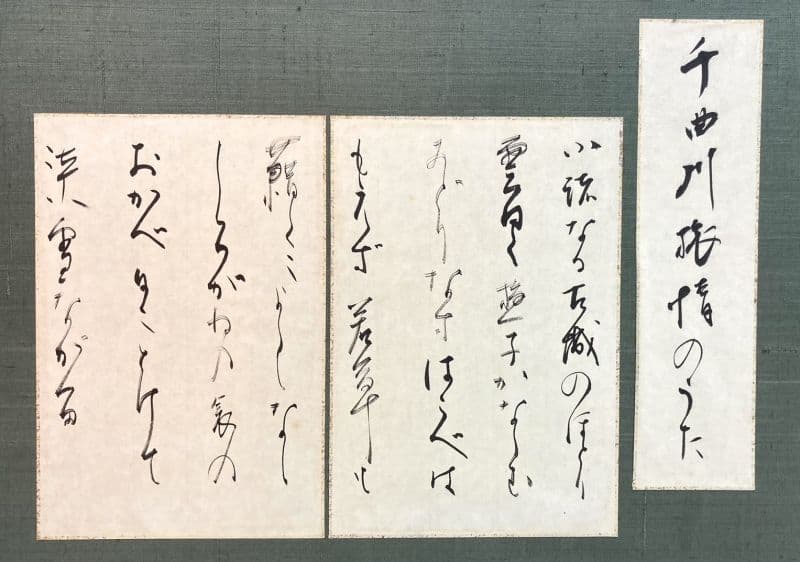 千曲川旅情のうた
小諸なる古城のほとり
雲白く遊子かなしむ
みどりなすはこべは
もえず若草も
藉くによしなし
しろがねの衾の
おかべ日にとけて
淡雪ながる